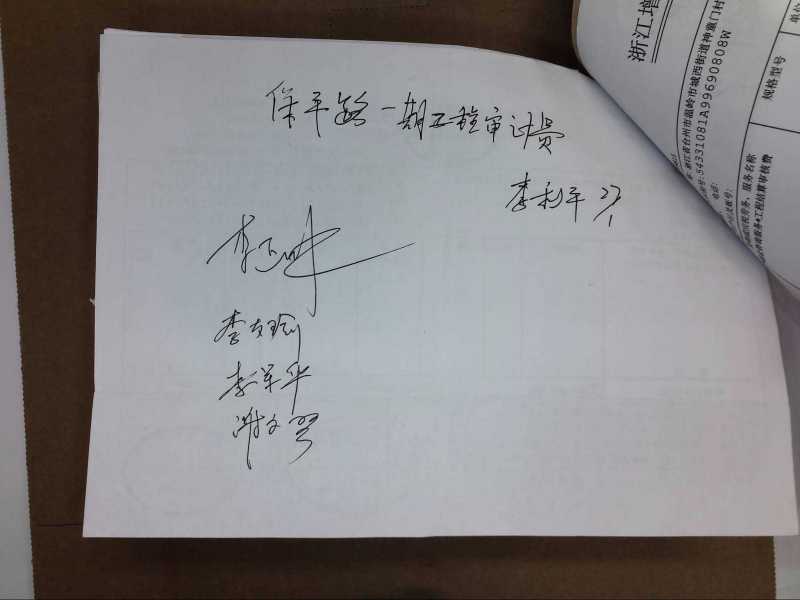 保平路一期工程审计费
李利平 27/1
李正
李文瑜
李军华
谢文
浙江增
省台州市温岭市城西街道神童门村
号:54331081A99690808W
电话:
规格型号
单位
服务名称
工程结算审核费